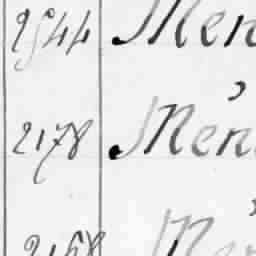 2544 Men
2178 Men
2168 Men